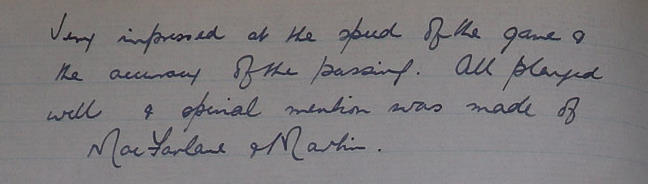 Very impressed at the speed of the game &
the accuracy of the passing. All played
well & special mention was made of
MacFarlane & Martin.